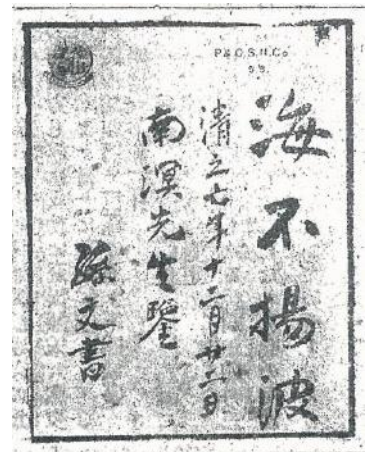 P & O. S. N. Co.
S.S.
海不揚波
清之七年十二月廿二日
南溟先生鑒
孫文書